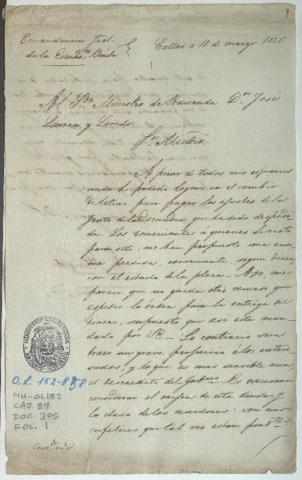 Comandancia Gral.
de la Escuadra
Callao a 18 de marzo 1825
Al Sor. Ministro de Hacienda Dn. José
Larrea y Loredo.
Sr. Ministro.
A pesar de todos mis esfuerzos
nada he podido lograr en el cambio
de letras para pagar los ajustes de la
gente de la Escuadra que ha de ser
Los comerciantes a quienes se invitó
para esto, me han propuesto una
perdida, consecuente segun dicen
con el estado de la plaza. Asi, me
parece que no queda otro recurso que
expedir la orden para la entrega del
dinero, supuesto que asi esta man
dado por S.E. Lo contrario será
traer un grave perjuicio á los intere
sados; y lo que es mas sensible aun
el descredito del Gobno. Es necesario
considerar el origen de esta deuda, y
la clase de los acreedores: son unos
infelices que tal vez estan
O.L. 152-878
MH-OL152
CAJ. 59
DOC. 395
FOL. 1